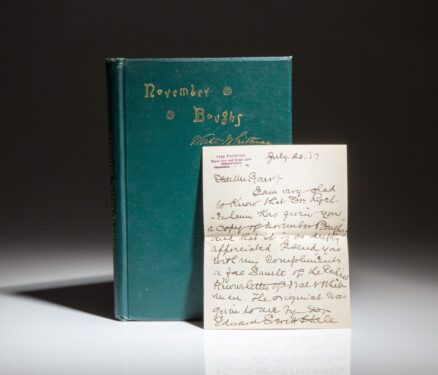 November
Boughs
Walt Whitman
July 22. '17
I am very glad
to know that Dr.
has given you
a copy of November Boughs
and that it is so deeply
appreciated. I send you
with my compliments
a fac simile of the Earliest
Known letter of Walt Whit-
man. The original was
given to me by Dr
Edward Everett Hale